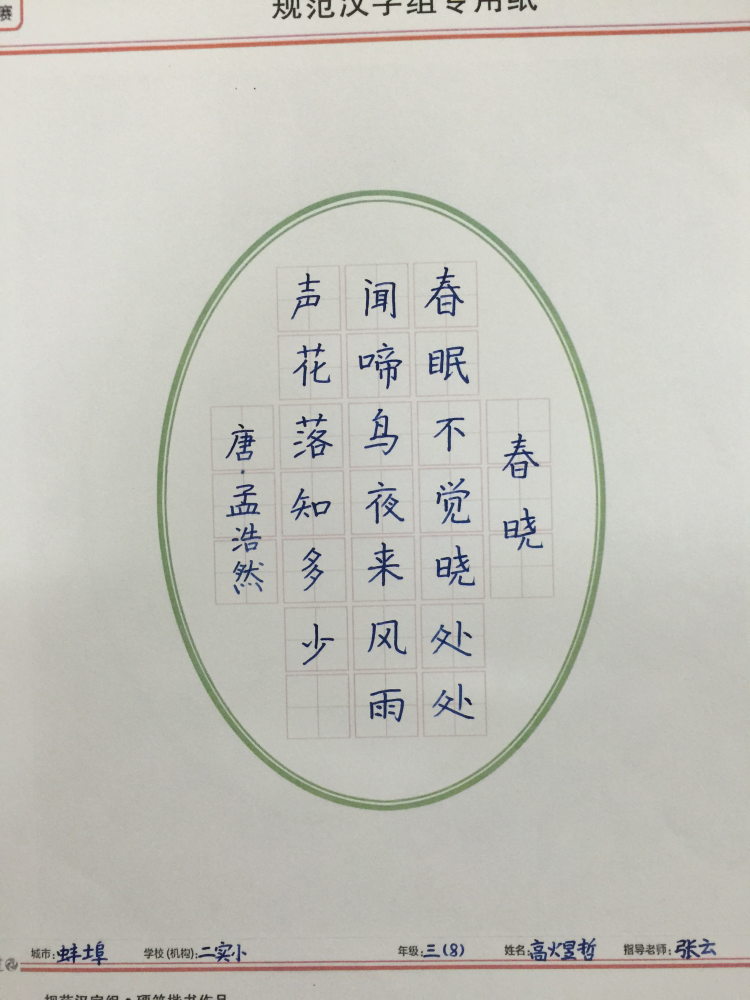 赛
规范汉字组专用纸
春晓
春眠不觉晓处处
闻啼鸟夜来风雨
声花落知多少
唐·孟浩然
城市:蚌埠 学校(机构):二实小 年级:三(8) 姓名:高煜哲 指导老师:张云
规范汉字组·硬笔楷书作品